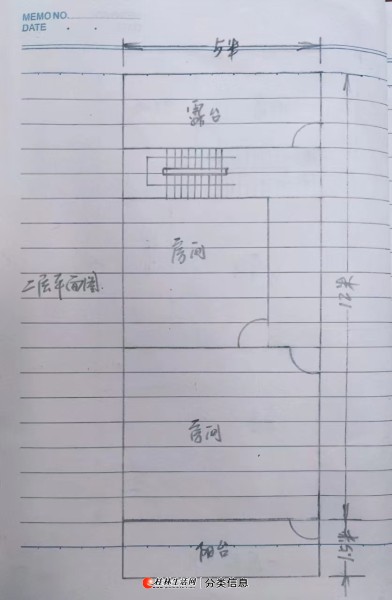 MEMO NO.
DATE
5米
露台
房间
二层平面图
12米
房间
1.5米
阳台
桂林生活网 分类信息